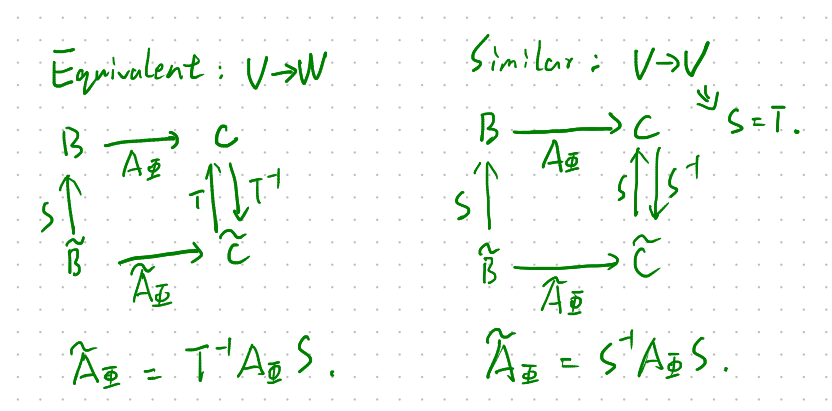 Equivalent: V→W
B → C
A_Φ
S T T⁻¹
B̃ → C̃
Ã_Φ
Ã_Φ = T⁻¹ A_Φ S.
Similar: V→V
⇒ S = T.
B → C
A_Φ
S S S⁻¹
B̃ → C̃
Ã_Φ
Ã_Φ = S⁻¹ A_Φ S.